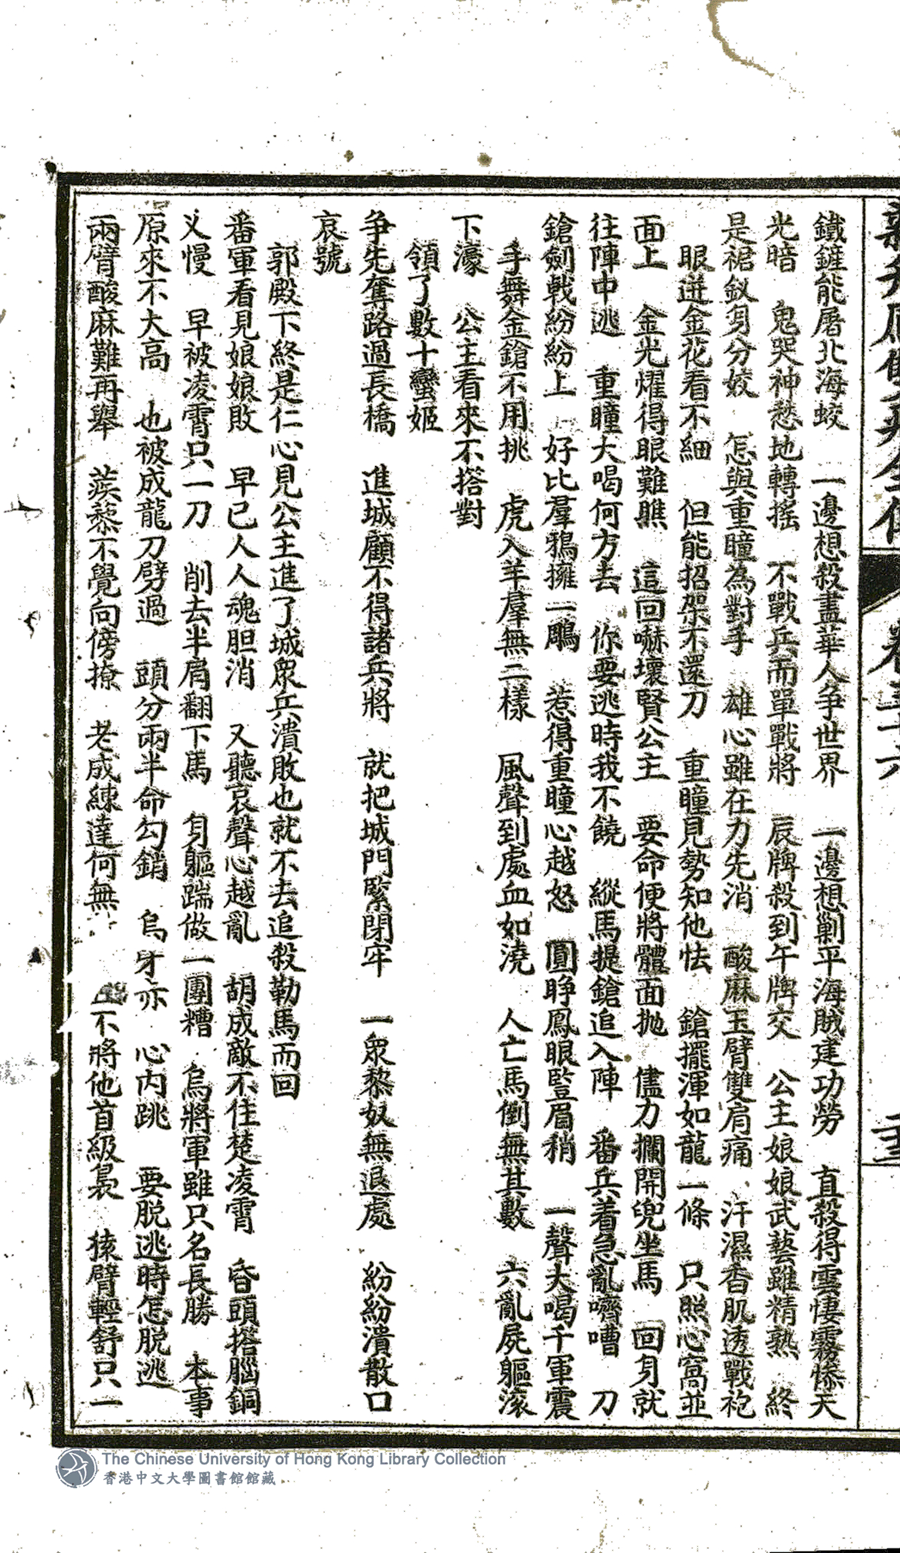 鐵鏟能屠北海蛟　一邊想殺盡華人爭世界　一邊想剿平海賊建功勞　直殺得雲悽霧慘天
光暗　鬼哭神愁地轉搖　不戰兵而單戰將　辰牌殺到午牌交　公主娘娘武藝雖精熟　終
是裙釵身分姣　怎與重瞳為對手　雄心雖在力先消　酸麻玉臂雙肩痛　汗濕香肌透戰袍
眼迸金花看不細　但能招架不還刀　重瞳見勢知他怯　鎗擺渾如龍一條　只照心窩並
面上　金光燿得眼難瞧　這回嚇壞賢公主　要命便將體面拋　儘力攔開兜坐馬　回身就
往陣中逃　重瞳大喝何方去　你要逃時我不饒　縱馬提鎗追入陣　番兵着急亂嘈嘈　刀
鎗劍戟紛紛上　好比羣鴉擁一鵰　惹得重瞳心越怒　圓睜鳳眼豎眉稍　一聲大喝千軍震
手舞金鎗不用挑　虎入羊羣無二樣　風聲到處血如澆　人亡馬倒無其數　六亂屍軀滾
下濠　公主看來不搭對
領了數十蠻姬
爭先奪路過長橋　進城顧不得諸兵將　就把城門緊閉牢　一眾黎奴無退處　紛紛潰散口
哀號
郭殿下終是仁心見公主進了城眾兵潰敗也就不去追殺勒馬而回
番軍看見娘娘敗　早已人人魂胆消　又聽哀聲心越亂　胡成敵不住楚凌霄　昏頭搭腦銅
乂慢　早被凌霄只一刀　削去半肩翻下馬　身軀踹做一團糟　烏將軍雖只名長勝　本事
原來不大高　也被成龍刀劈過　頭分兩半命勾銷　烏牙亦　心內跳　要脫逃時怎脫逃
兩臂酸麻難再舉　蒺藜不覺向傍撩　老成練達何無　不將他首級梟　猿臂輕舒只一
卷五十六
The Chinese University of Hong Kong Library Collection
香港中文大學圖書館館藏